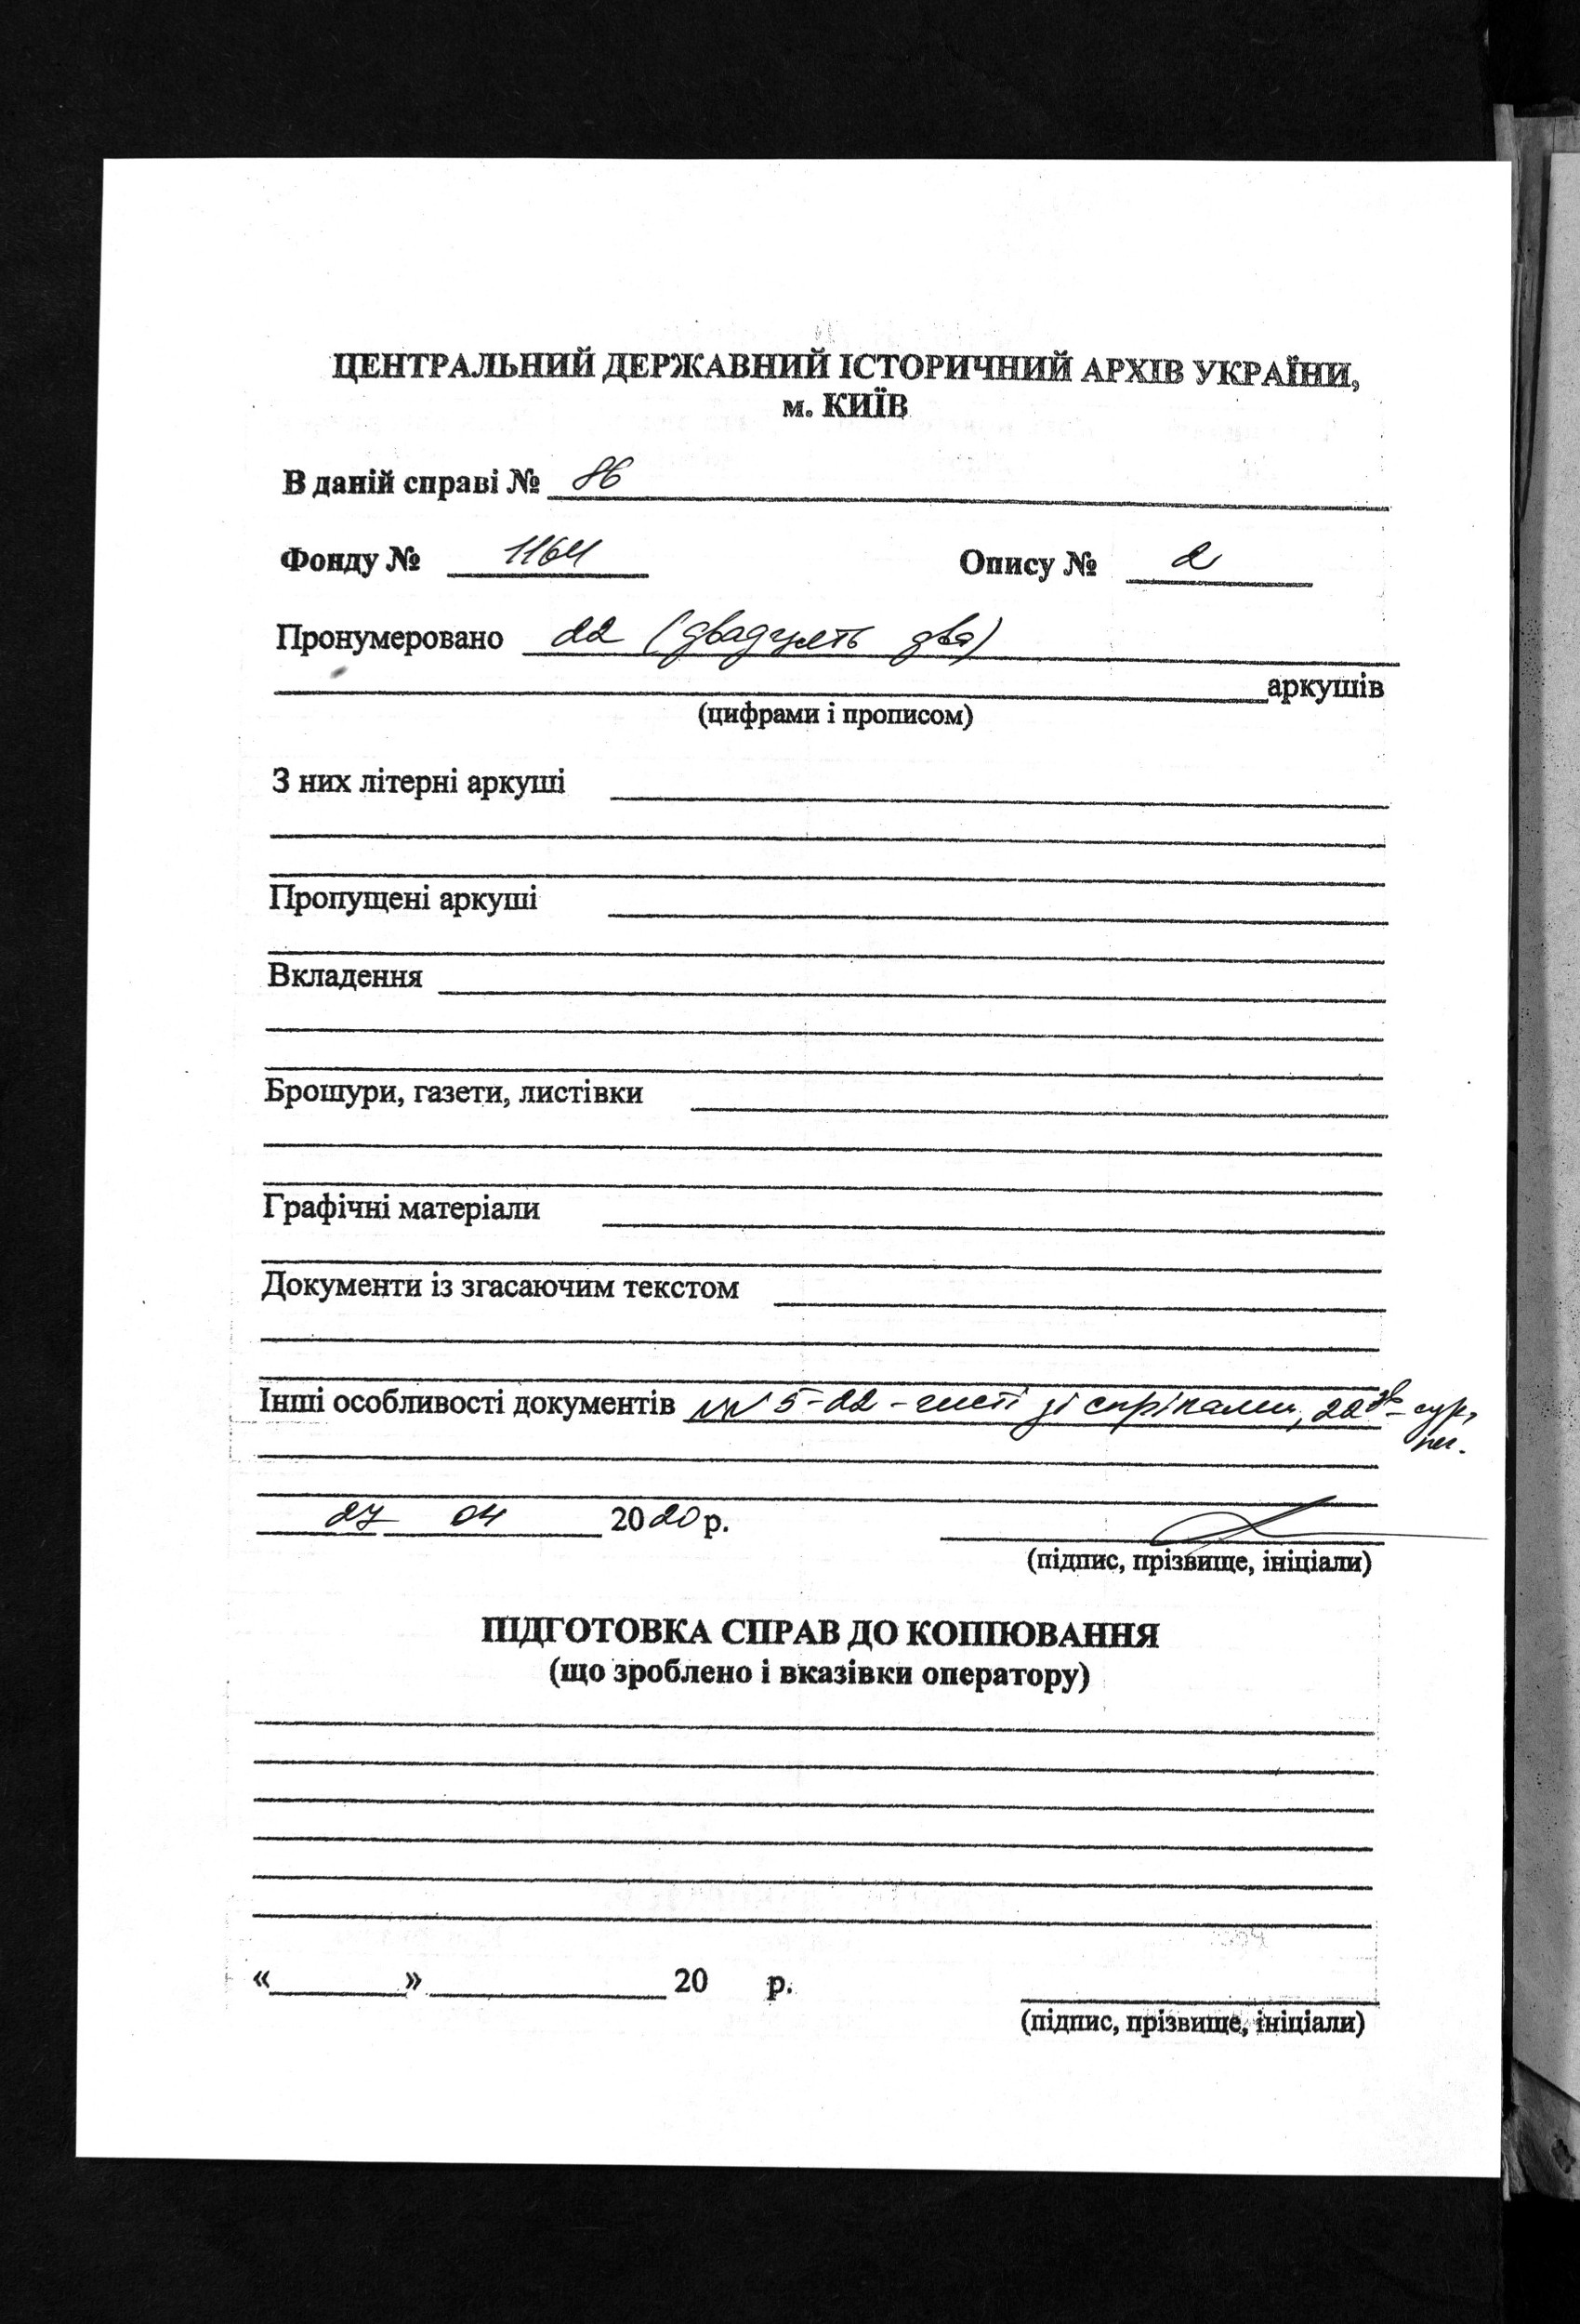 ЦЕНТРАЛЬНИЙ ДЕРЖАВНИЙ ІСТОРИЧНИЙ АРХІВ УКРАЇНИ,
м. КИЇВ
В даній справі № 86
Фонду № 1164 Опису № 2
Пронумеровано 22 (двадцять два)
аркушів
(цифрами і прописом)
З них літерні аркуші
Пропущені аркуші
Вкладення
Брошури, газети, листівки
Графічні матеріали
Документи із згасаючим текстом
Інші особливості документів NN 5-22 - чисті зі скріпами, 22зв - сург.
печ.
27 04 2020 р.
(підпис, прізвище, ініціали)
ПІДГОТОВКА СПРАВ ДО КОПІЮВАННЯ
(що зроблено і вказівки оператору)
« » 20 р.
(підпис, прізвище, ініціали)